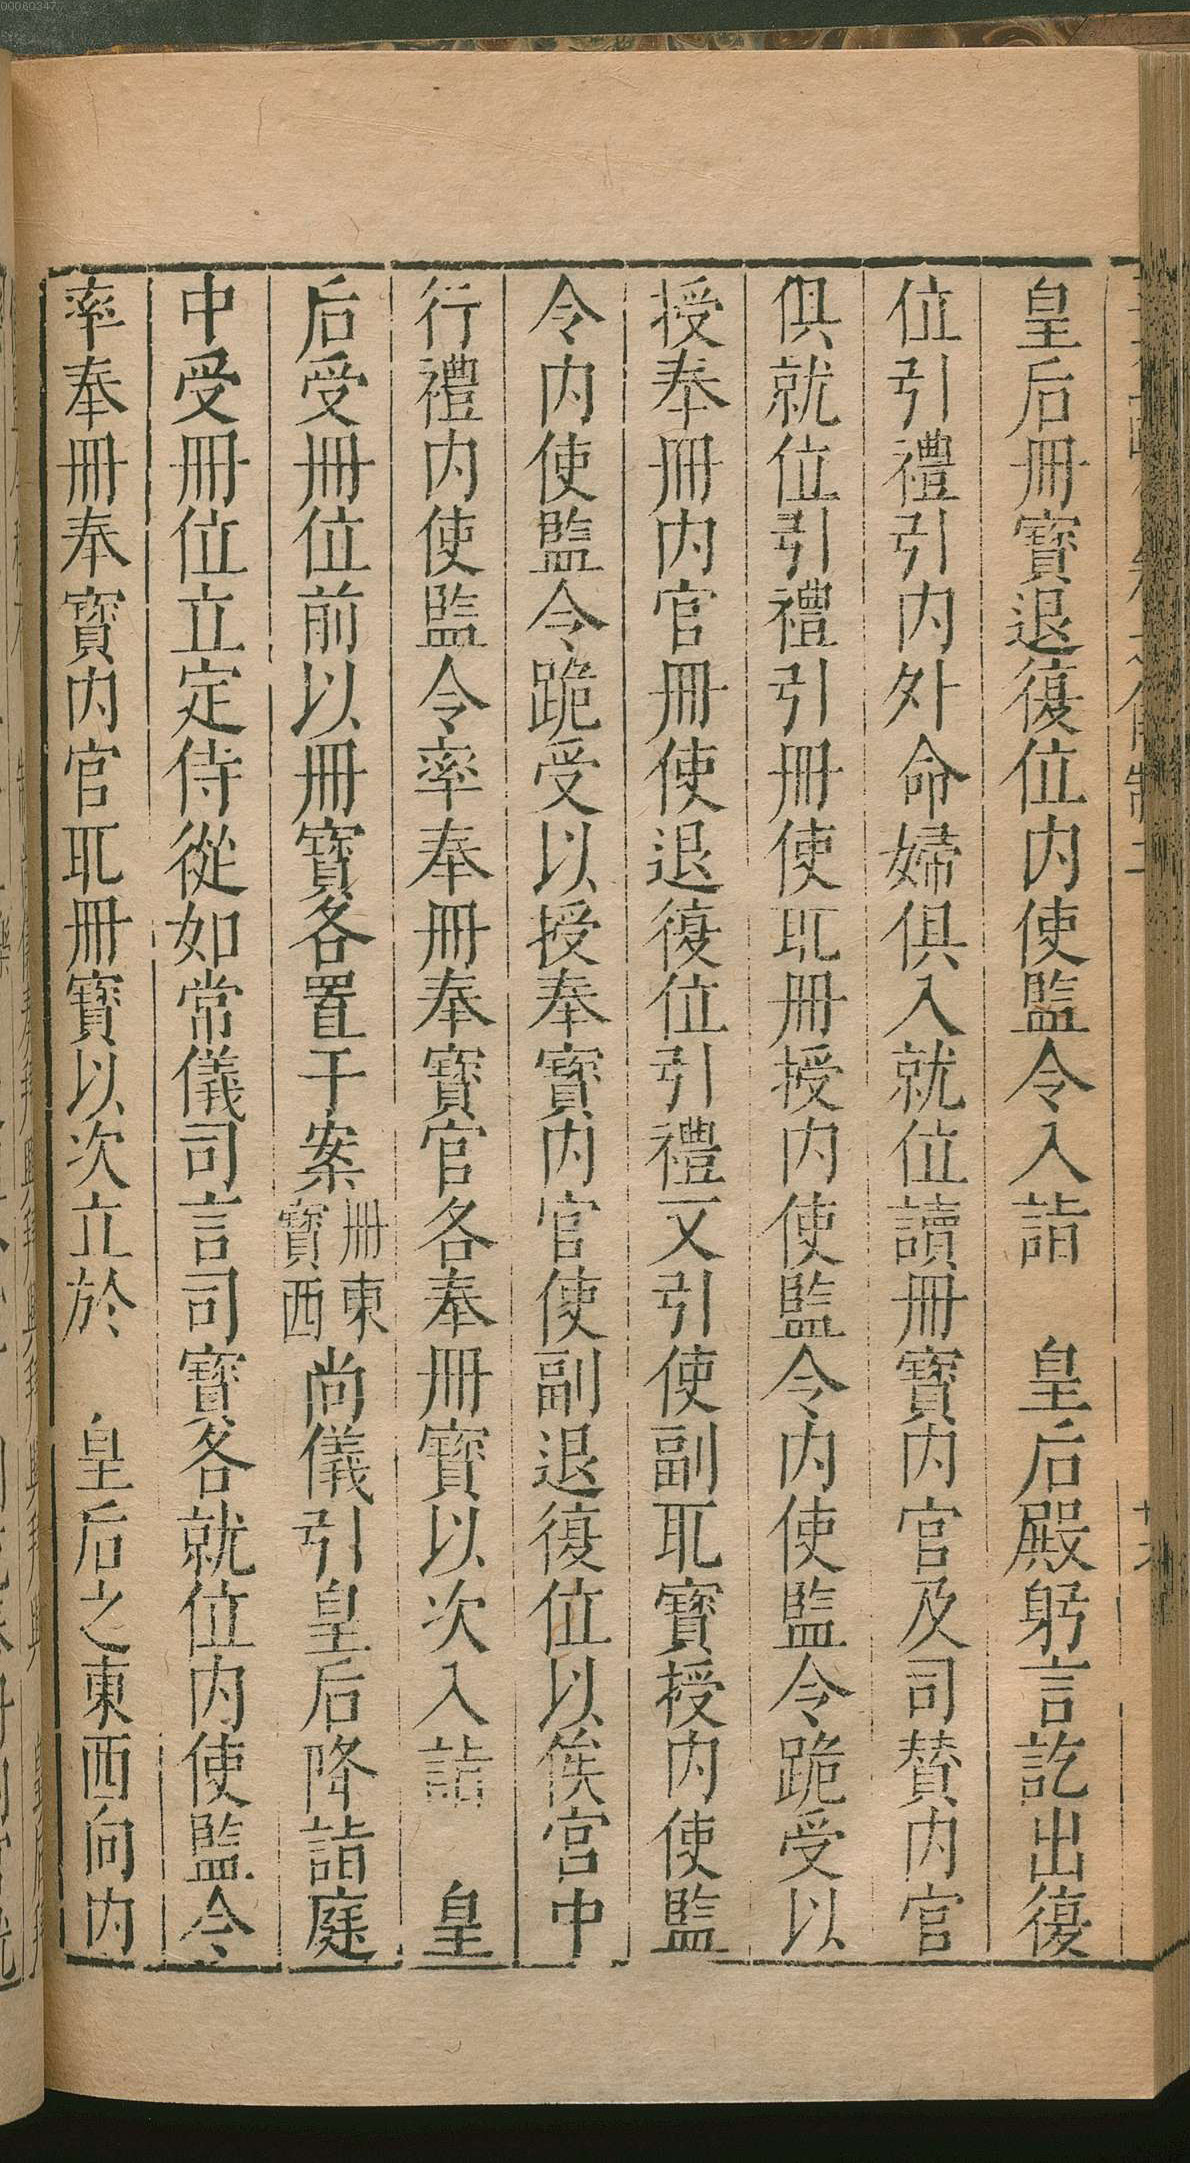 皇后冊寶退復位内使監令入詣　皇后殿躬言訖出復
位引禮引内外命婦俱入就位讀冊寶内官及司贊内官
俱就位引禮引冊使取冊授内使監令内使監令跪受以
授奉冊内官冊使退復位引禮又引使副取寶授内使監
令内使監令跪受以授奉寶内官使副退復位以俟宮中
行禮内使監令率奉冊奉寶官各奉冊寶以次入詣　皇
后受冊位前以冊寶各置于案冊東寶西尚儀引皇后降詣庭
中受冊位立定侍從如常儀司言司寶各就位内使監令
率奉冊奉寶内官取冊寶以次立於　皇后之東西向内
00060347